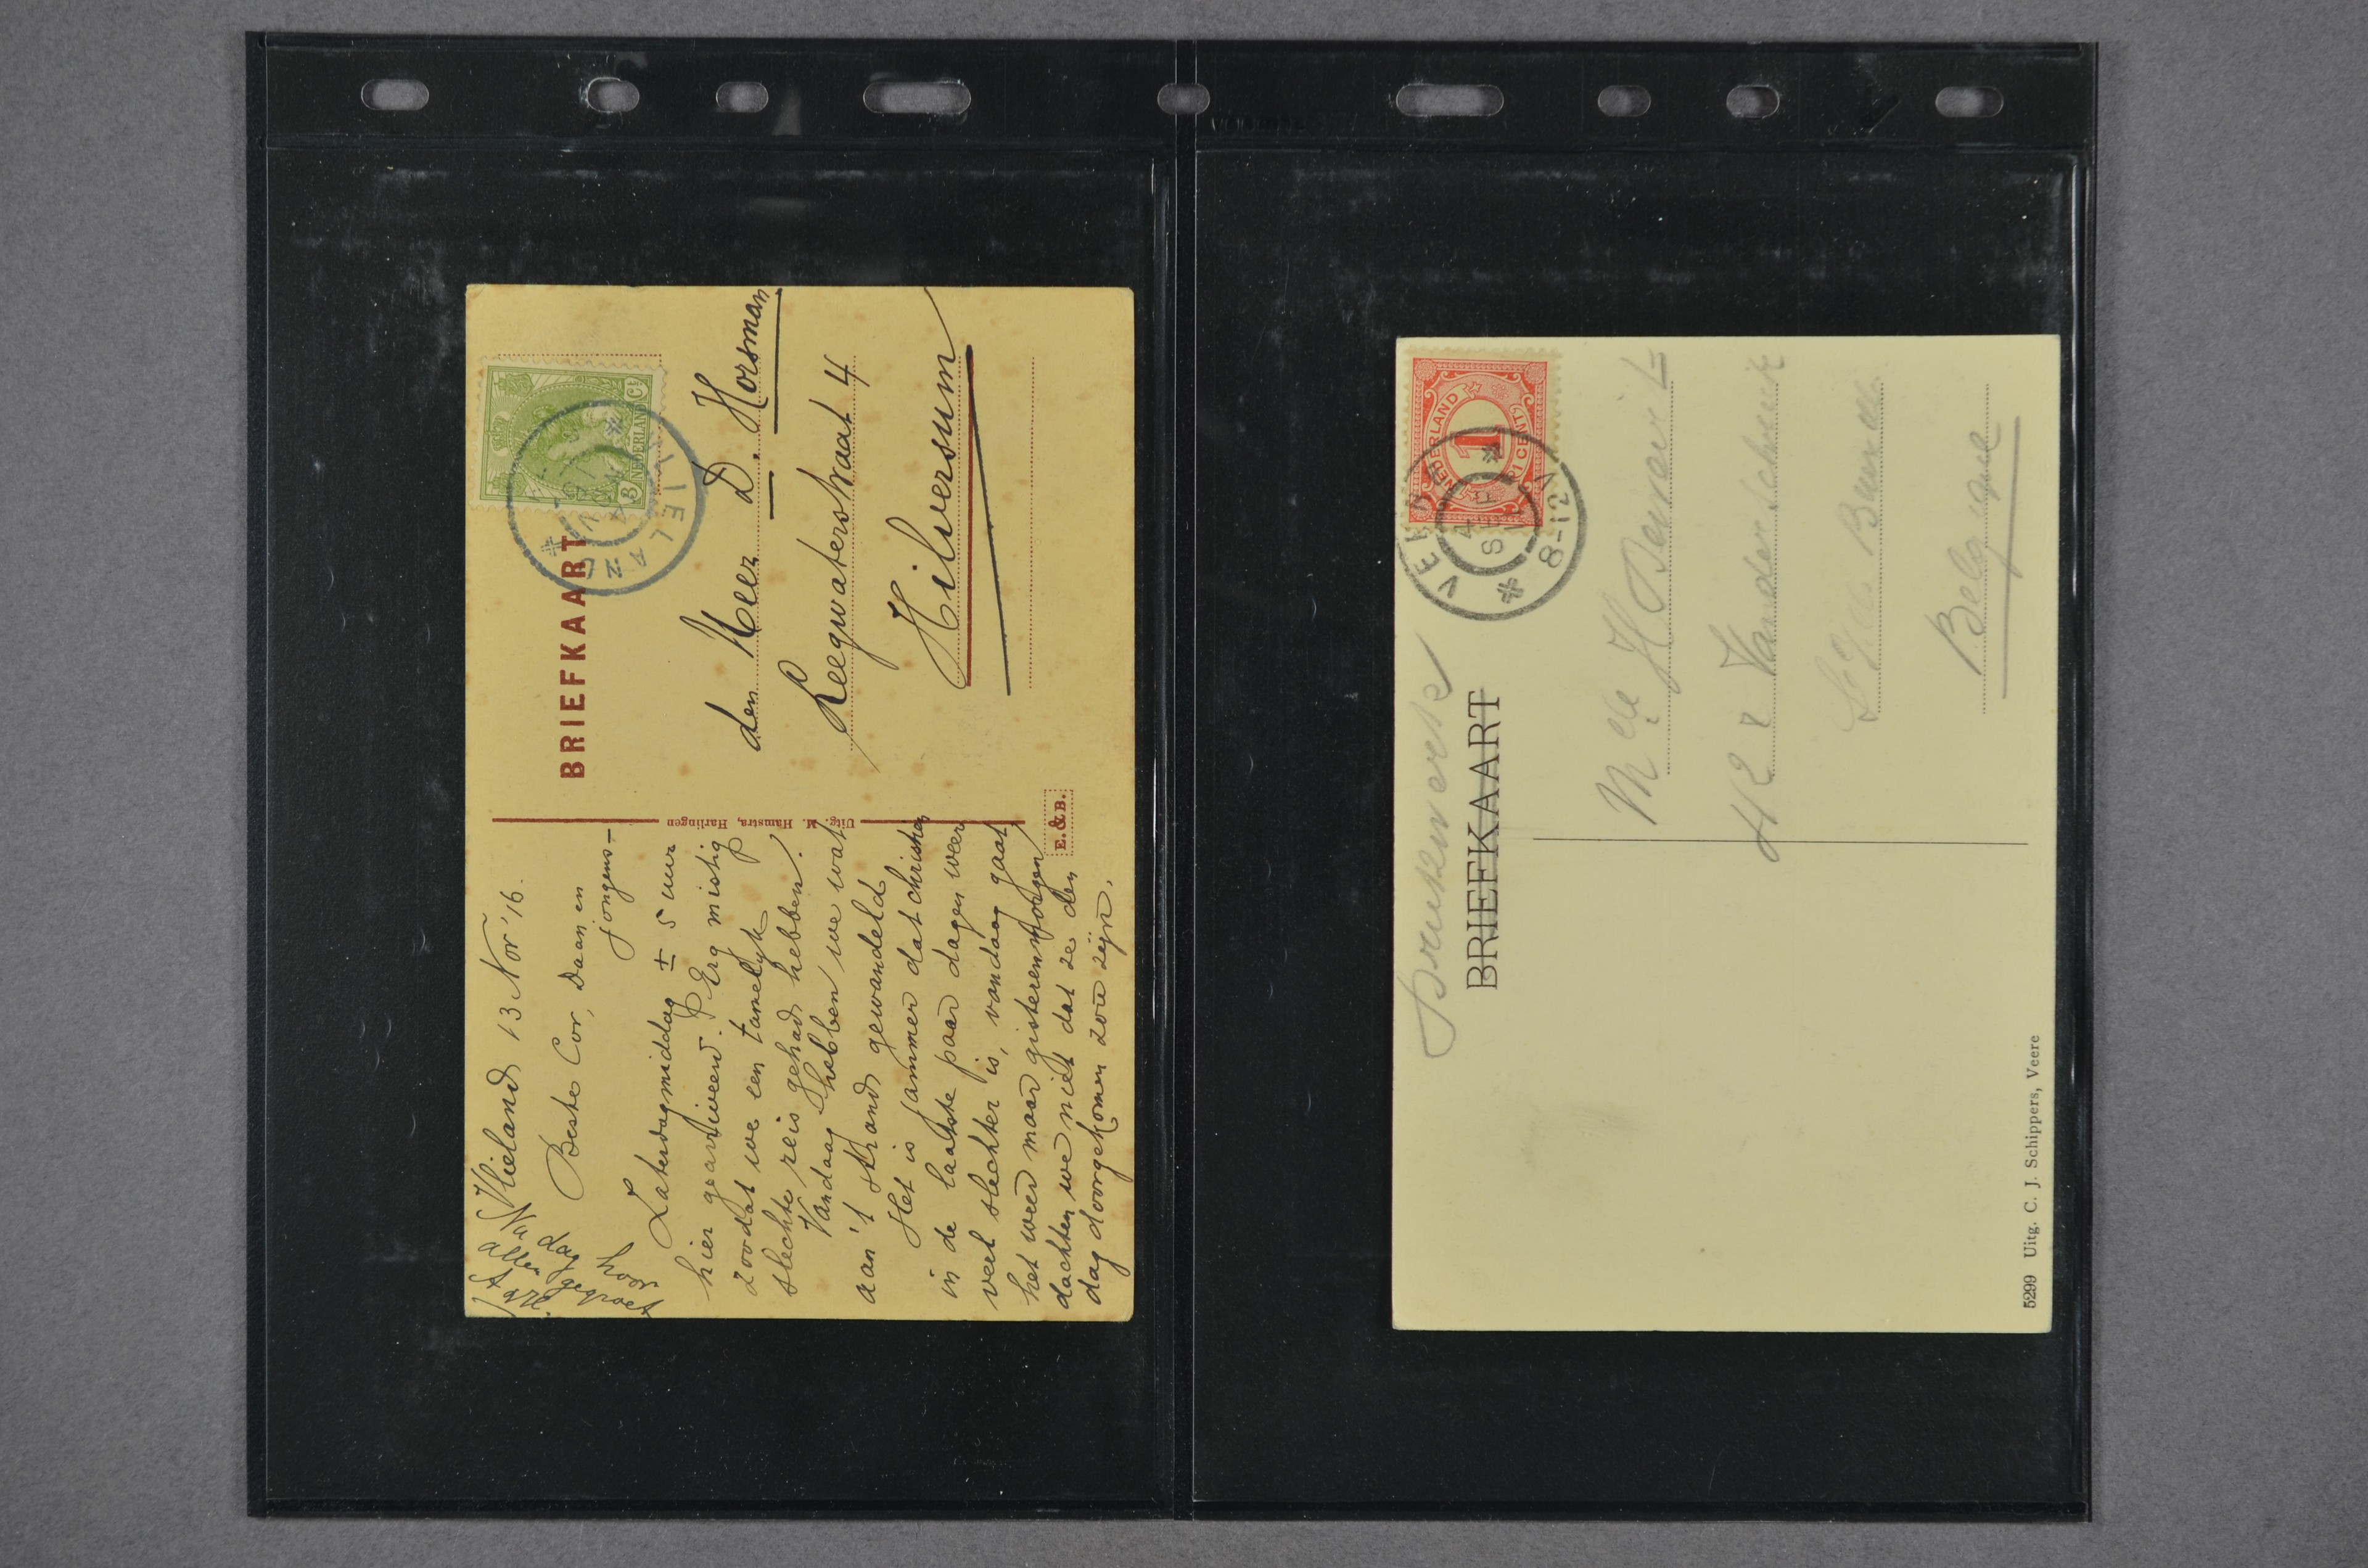 Vlieland 13 Nov '16.
Beste Cor, Daan en
jongens-
Zaterdagmiddag ± 5 uur
hier gearriveerd. Erg mistig
zoodat we een tamelijk
slechte reis gehad hebben.
Vandaag hebben we wat
aan 't strand gewandeld
Het is jammer dat
in de laatste paar dagen weer
veel slechter is, vandaag gaat
het weer maar gisterenmorgen
dachten we niet dat ze den
dag doorgekomen zou zijn.
Na dag hoor
allen gegroet
BRIEFKAART
Uitg. M. Hamstra, Harlingen
E. & B.
3 NEDERLAND Ct
VLIELAND
den Heer D. Horsman
Leegwaterstraat 4
Hilversum
Drukwerk
BRIEFKAART
NEDERLAND
1
1 CENT
VEERE
4 SEP
8-12V
Mlle H
Vander
Belgique
5299 Uitg. C. J. Schippers, Veere